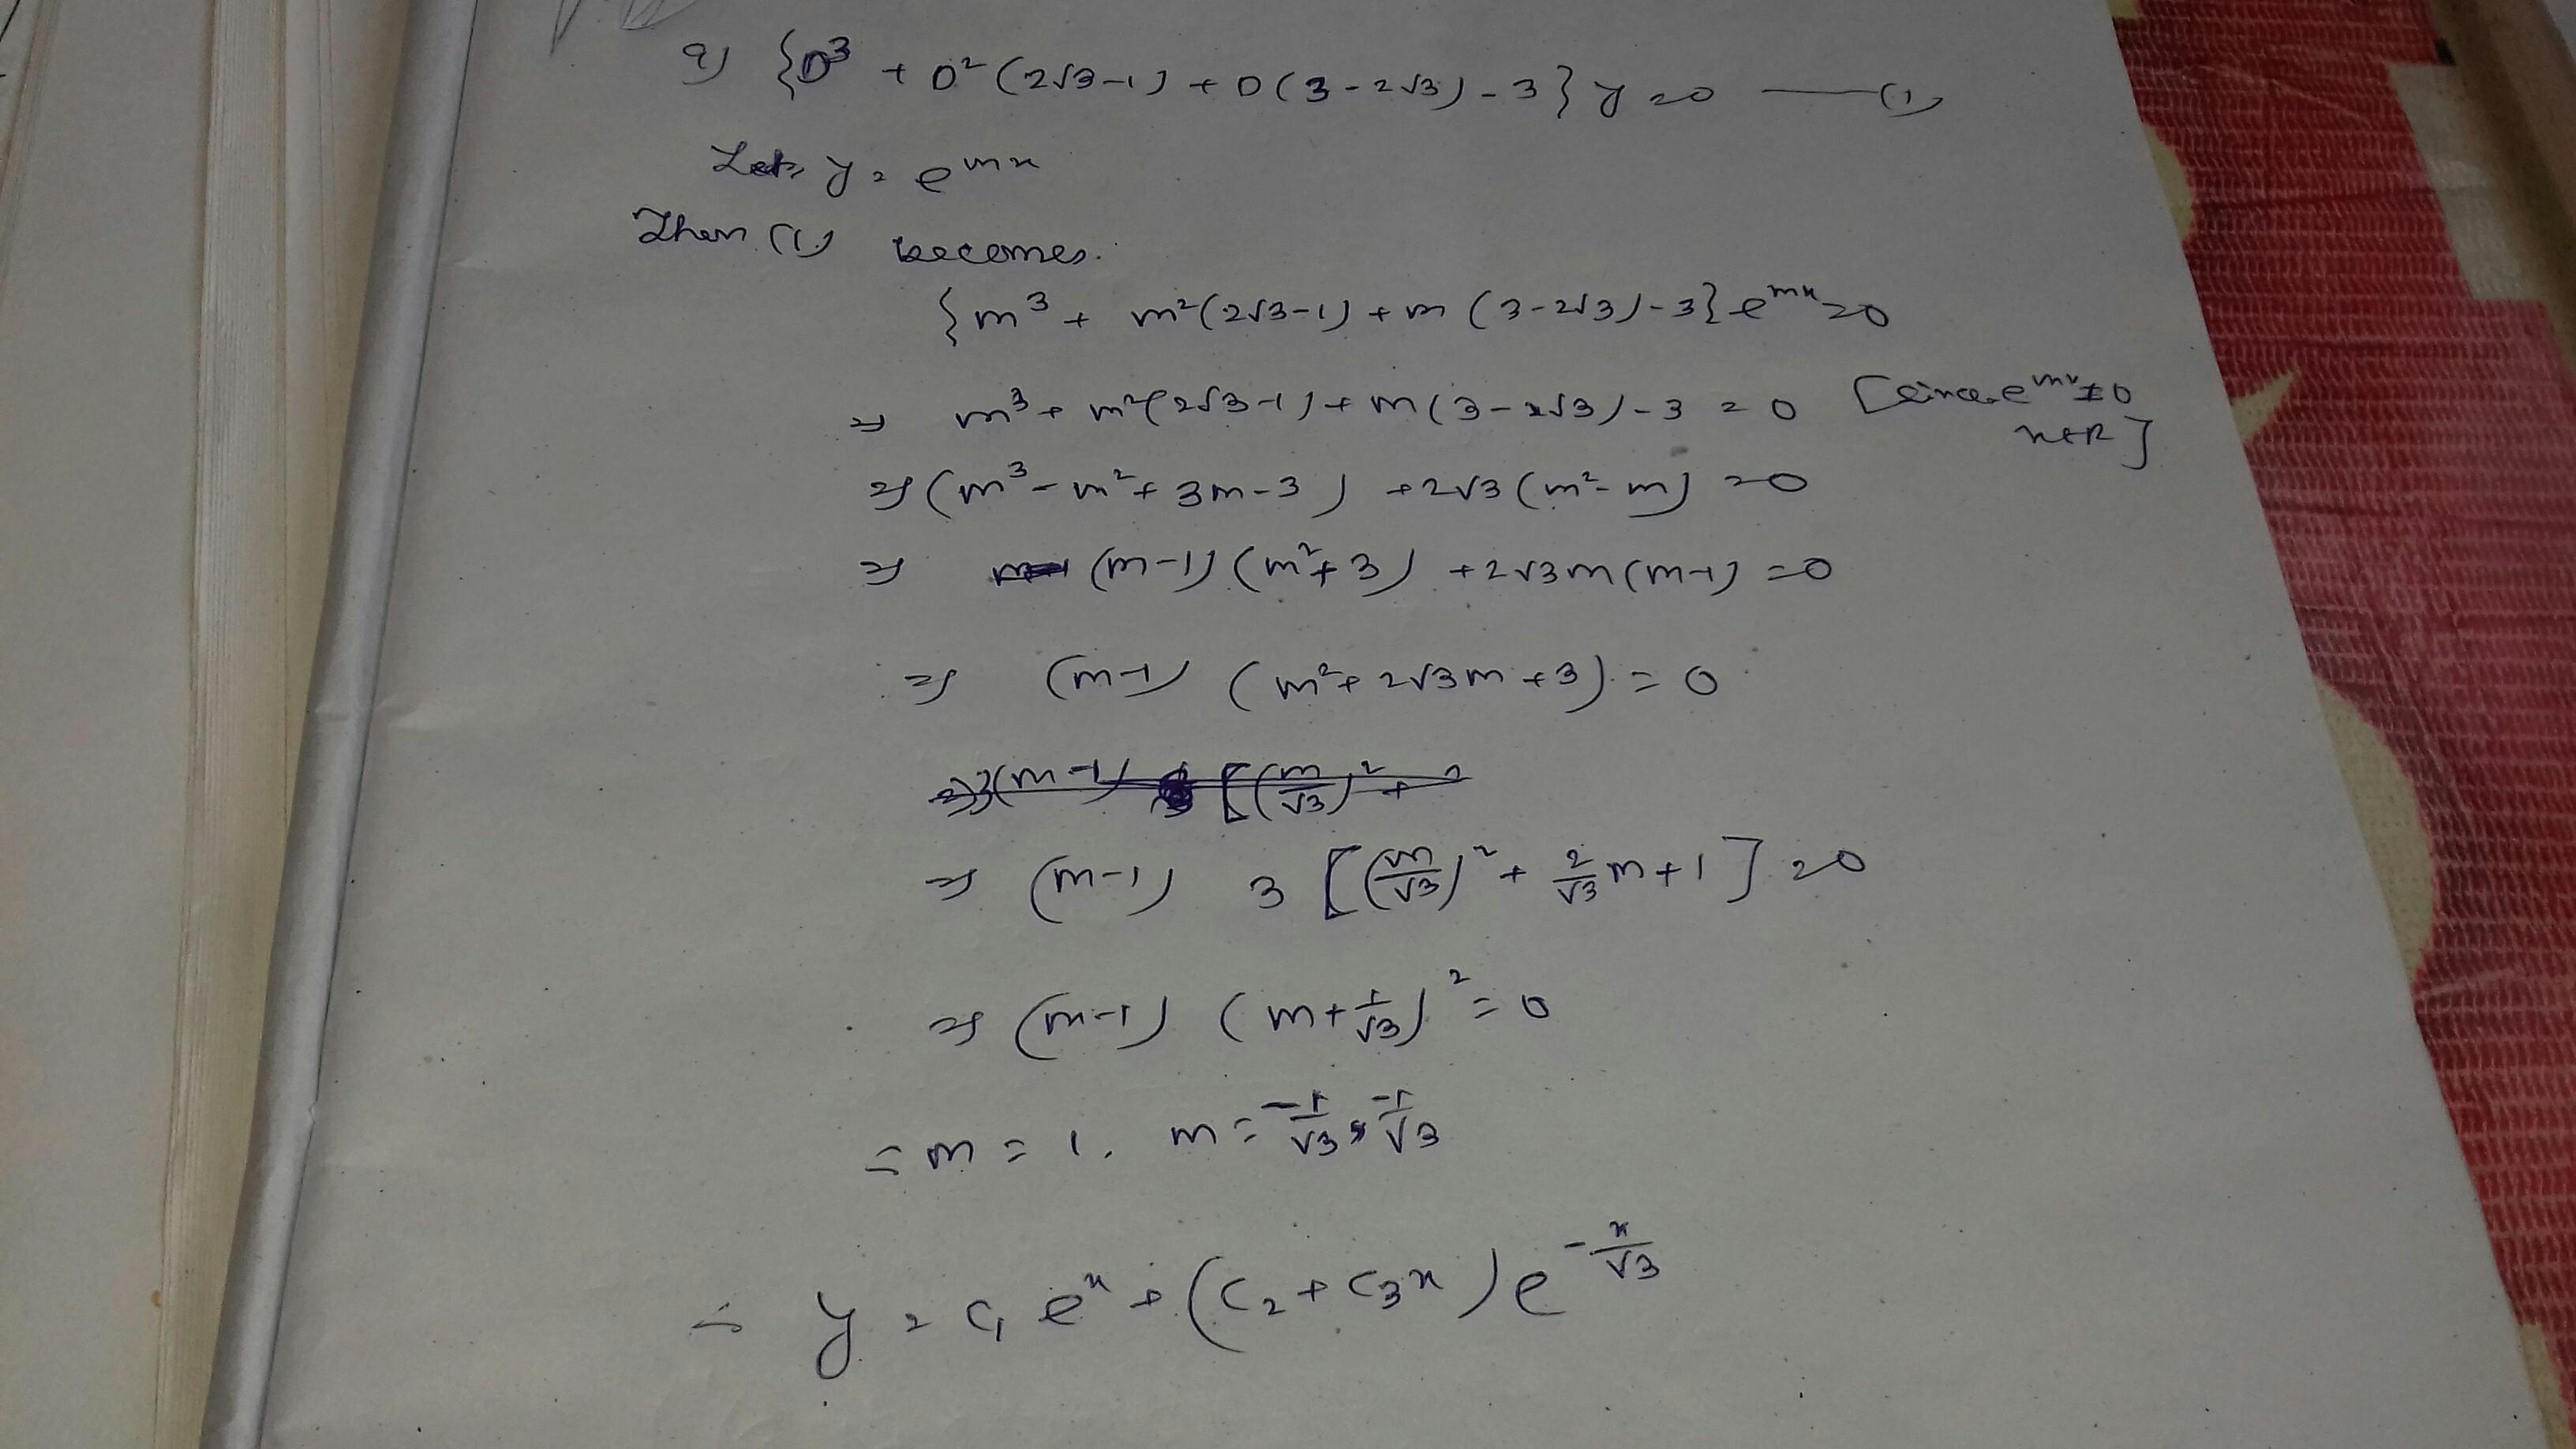 9) {D³ + D² (2√3-1) + D(3-2√3) - 3} y = 0 —— (1)
Let, y = e^{mx}
Then (1) becomes.
{m³ + m²(2√3-1) + m (3-2√3) - 3} e^{mx} = 0
⇒ m³ + m²(2√3-1) + m(3-2√3) - 3 = 0 [since e^{mx} ≠ 0
x∈R]
⇒ (m³ - m² + 3m - 3) + 2√3 (m² - m) = 0
⇒ (m-1) (m² + 3) + 2√3 m (m-1) = 0
⇒ (m-1) (m² + 2√3 m + 3) = 0
⇒ (m-1) 3 [(m/√3)² + 2/√3 m + 1] = 0
⇒ (m-1) (m + 1/√3)² = 0
= m = 1, m = -1/√3, -1/√3
∴ y = c₁ e^x + (c₂ + c₃x) e^{-x/√3}